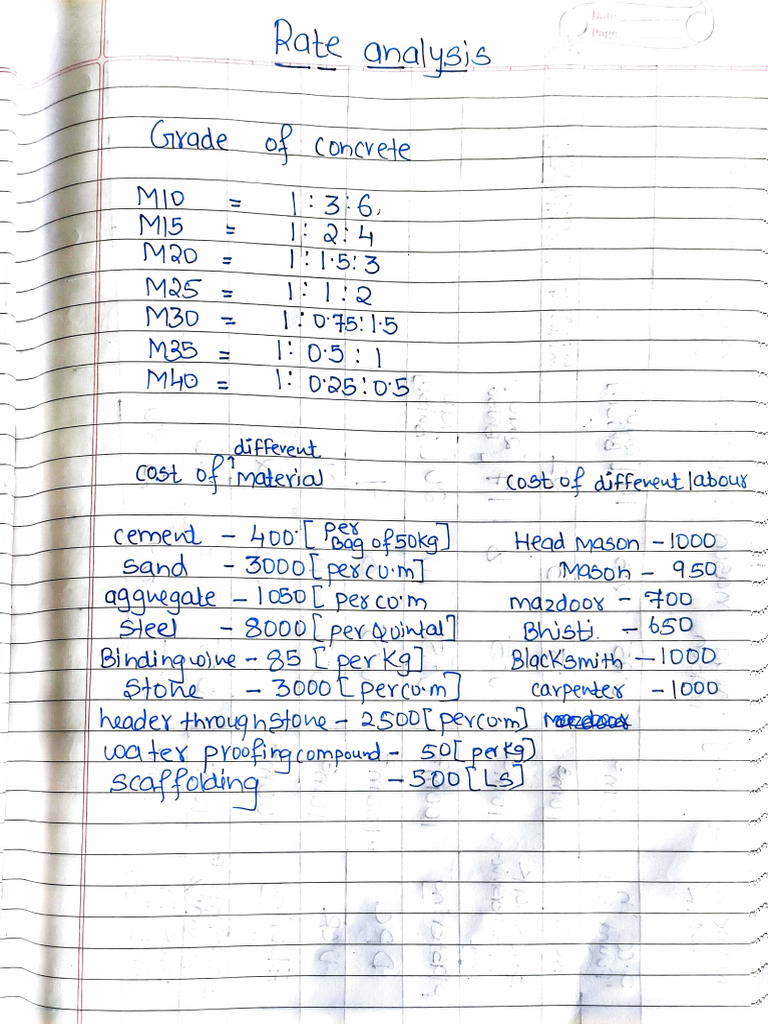 Date
Page
Rate analysis
Grade of concrete
M10 = 1 : 3 : 6
M15 = 1 : 2 : 4
M20 = 1 : 1.5 : 3
M25 = 1 : 1 : 2
M30 = 1 : 0.75 : 1.5
M35 = 1 : 0.5 : 1
M40 = 1 : 0.25 : 0.5
cost of different material
cement - 400 [per Bag of 50kg]
sand - 3000 [per cu.m]
aggregate - 1050 [per cu.m
steel - 8000 [per Quintal]
Binding wire - 85 [per Kg]
Stone - 3000 [per cu.m]
header through stone - 2500 [per cu.m]
water proofing compound - 50 [per kg)
scaffolding - 500 [Ls]
cost of different labour
Head mason - 1000
Mason - 950
mazdoor - 700
Bhisti - 650
Blacksmith - 1000
carpenter - 1000